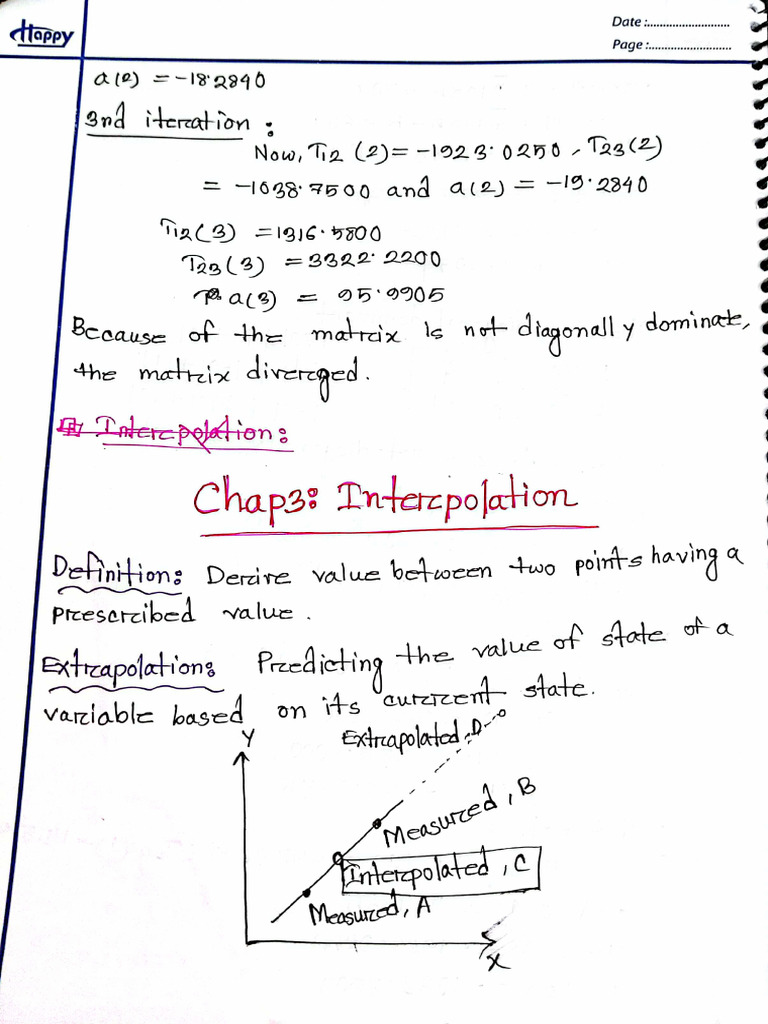 Happy
Date :............................
Page :............................
a(2) = -18.2840
3nd iteration :
Now, T12 (2) = -1923.0250, T23(2)
= -1038.7500 and a(2) = -19.2840
T12(3) = 1316.5800
T23(3) = 3322.2200
a(3) = 95.9905
Because of the matrix is not diagonally dominate,
the matrix diverged.
Interpolation:
Chap3: Interpolation
Definition: Derive value between two points having a
prescribed value.
Extrapolation: Predicting the value of state of a
variable based on its current state.
Y
Extrapolated, D
Measured, B
Interpolated, C
Measured, A
X